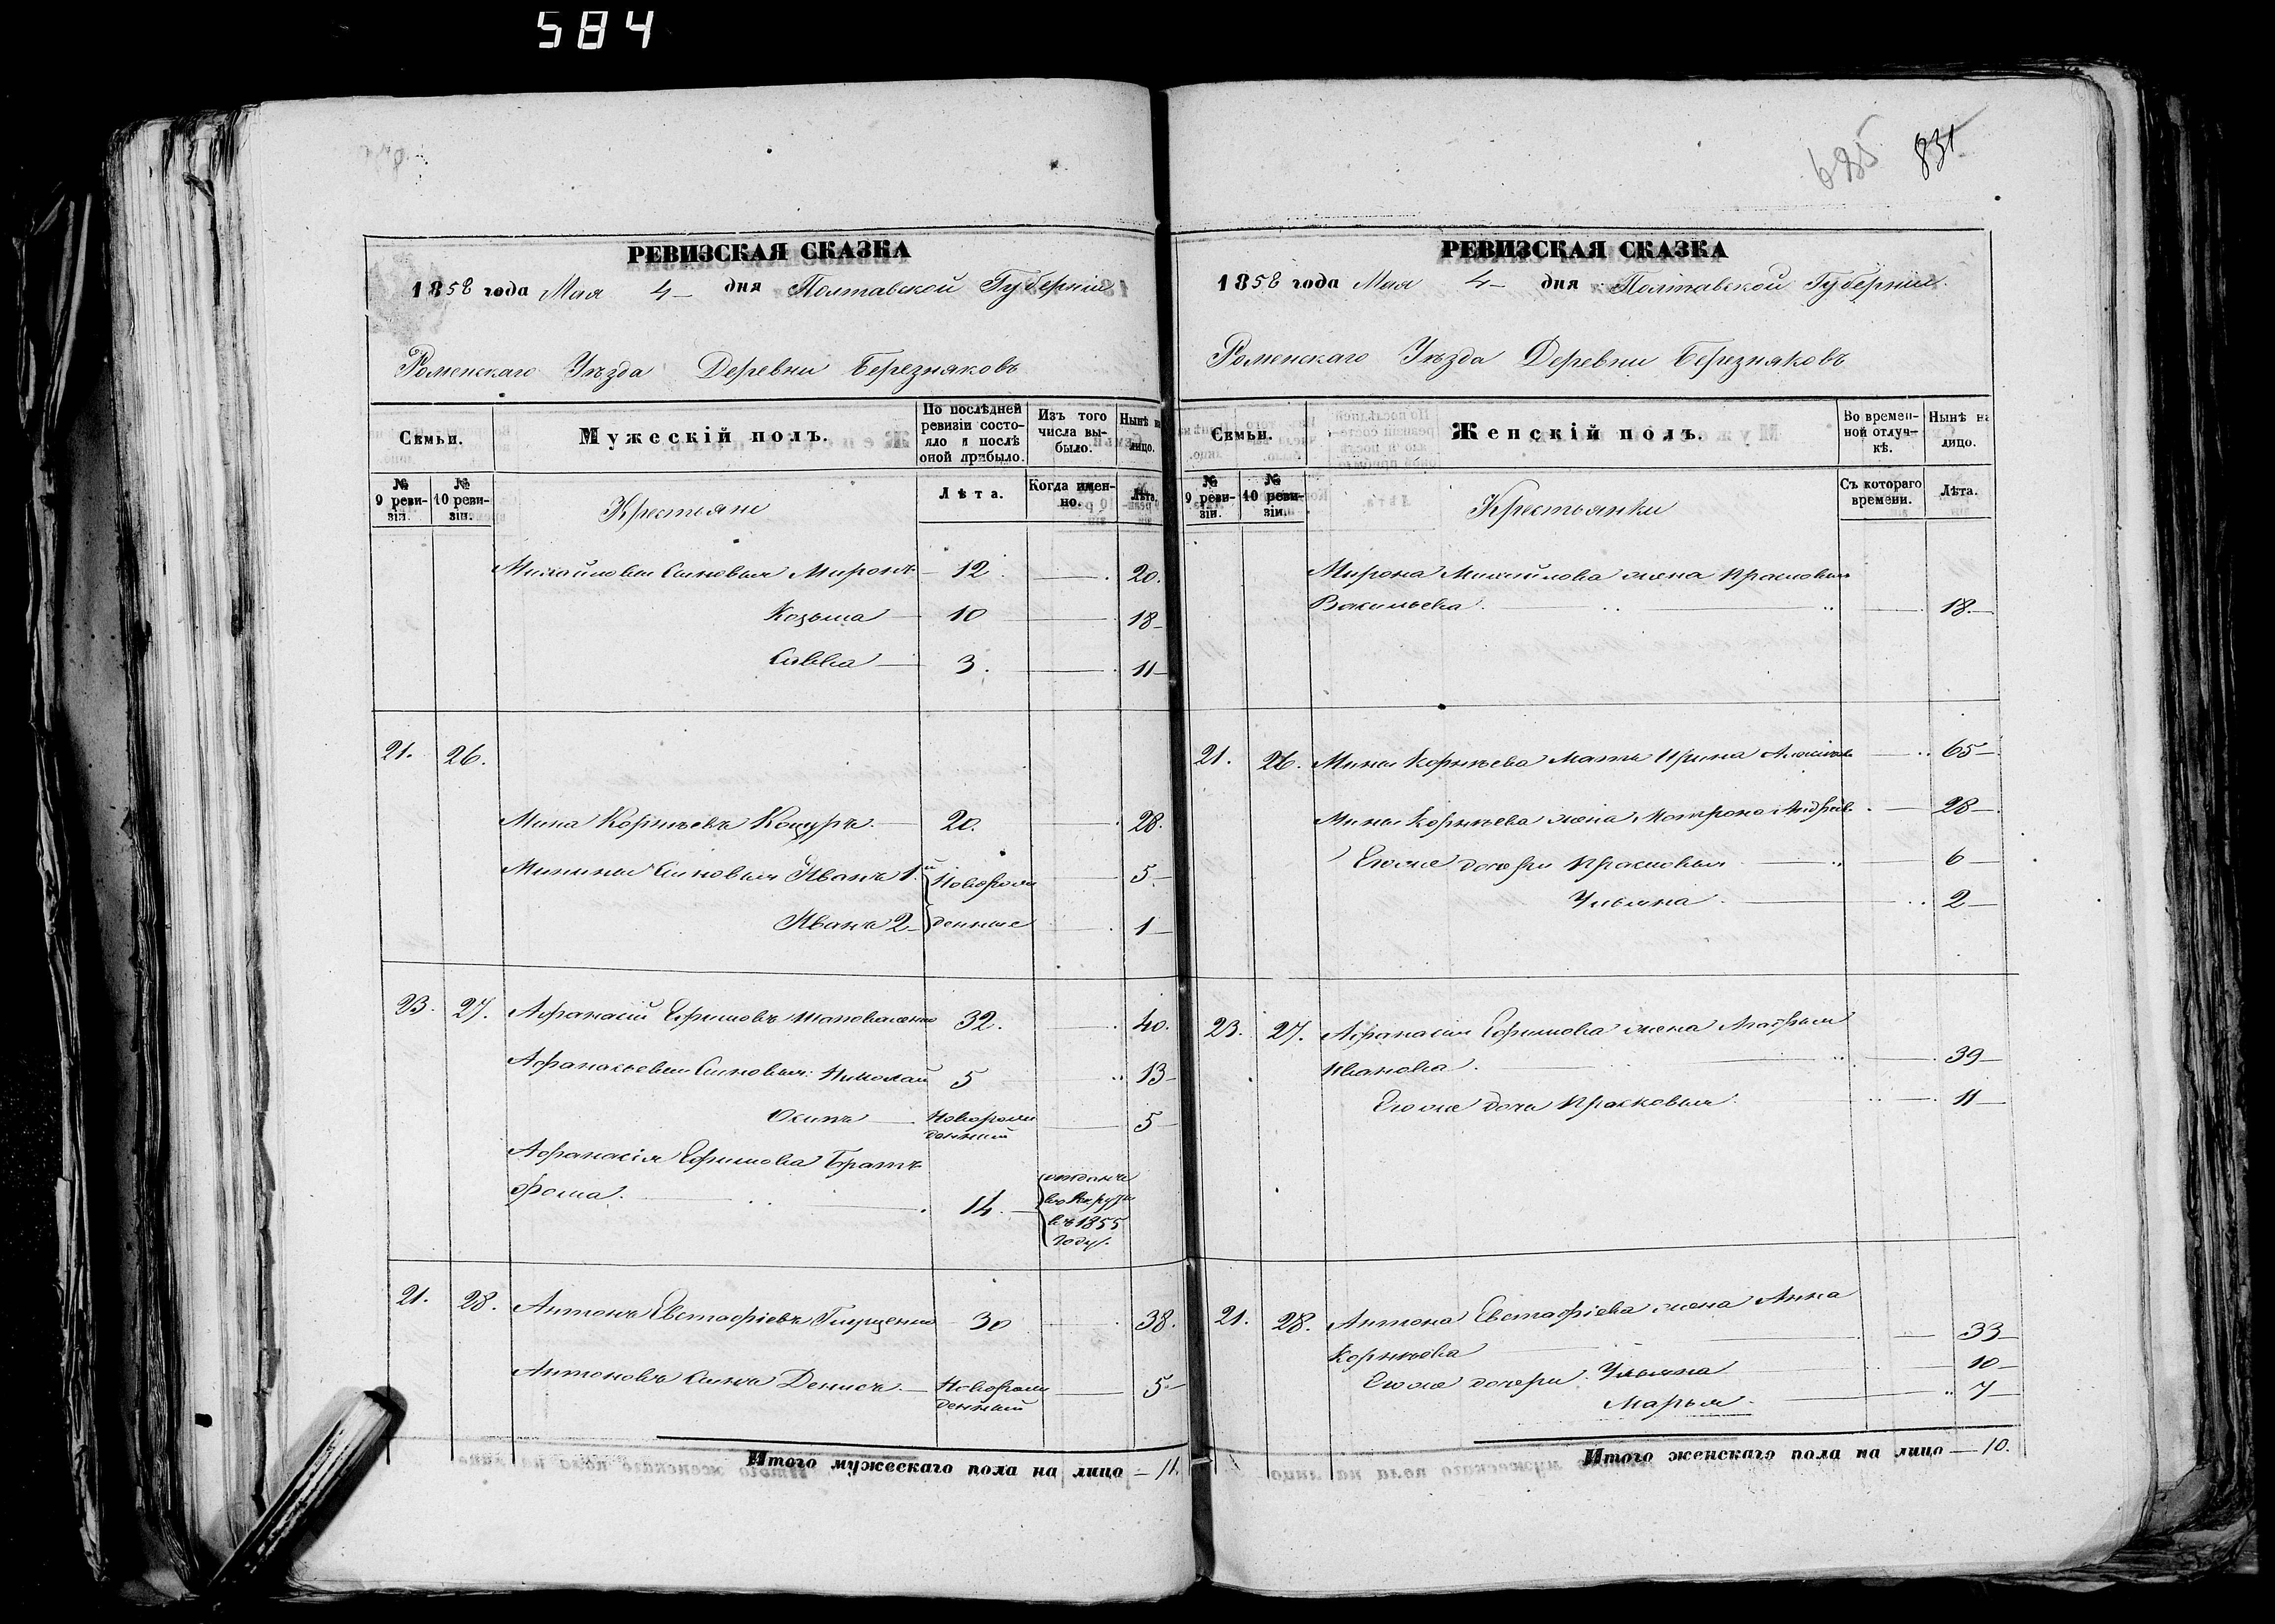 584
685 831
РЕВИЗСКАЯ СКАЗКА
1858 года Мая 4 дня Полтавской Губерніи
Роменскаго Уѣзда Деревни Березняковъ
Семьи.
Мужескій полъ.
По послѣдней ревизіи состояло и послѣ оной прибыло.
Изъ того числа выбыло.
Нынѣ на лицо.
№ 9 ревизіи.
№ 10 ревизіи.
Крестьяни
Лѣта.
Когда именно.
Лѣта.
Михайловы сыновья Миронъ 12 20.
Козьма 10 18
Савва 3. 11
21. 26.
Мина Корнѣевъ Коцуръ 20. 28.
Минины сыновья Иванъ 1й Новорож 5
Иванъ 2 денные 1
23. 27. Афанасій Ефимовъ Шаповаленко 32. 40.
Афанасьевы сыновья: Николай 5 13
Осипъ Новорож 5
денный
Афанасія Ефимова Братъ
Фома. 14. отданъ
въ Рекруты
въ 1855
году.
21. 28. Антонъ Евстафіевъ Глущенко 30 38.
Антоновъ сынъ Денисъ Новорож 5
денный
Итого мужескаго пола на лицо 11.
РЕВИЗСКАЯ СКАЗКА
1858 года Мая 4 дня Полтавской Губерніи
Роменскаго Уѣзда Деревни Березняковъ
Семьи.
Женскій полъ.
Во временной отлучкѣ.
Нынѣ на лицо.
№ 9 ревизіи.
№ 10 ревизіи.
Крестьянки
Съ котораго времени.
Лѣта.
Мирона Михайлова жена Прасковья
Васильева 18
21. 26. Мины Корнѣева мать Ирина 65
Мины Корнѣева жена Мотрона Андрѣев. 28
Его же дочери Прасковья 6
Ульяна 2
23. 27. Афанасія Ефимова жена Агафья
Иванова 39
Его же дочь Прасковья 11
21. 28. Антона Евстафіева жена Анна
Корнѣева 33
Его же дочери Ульяна 10
Марья 7
Итого женскаго пола на лицо 10.